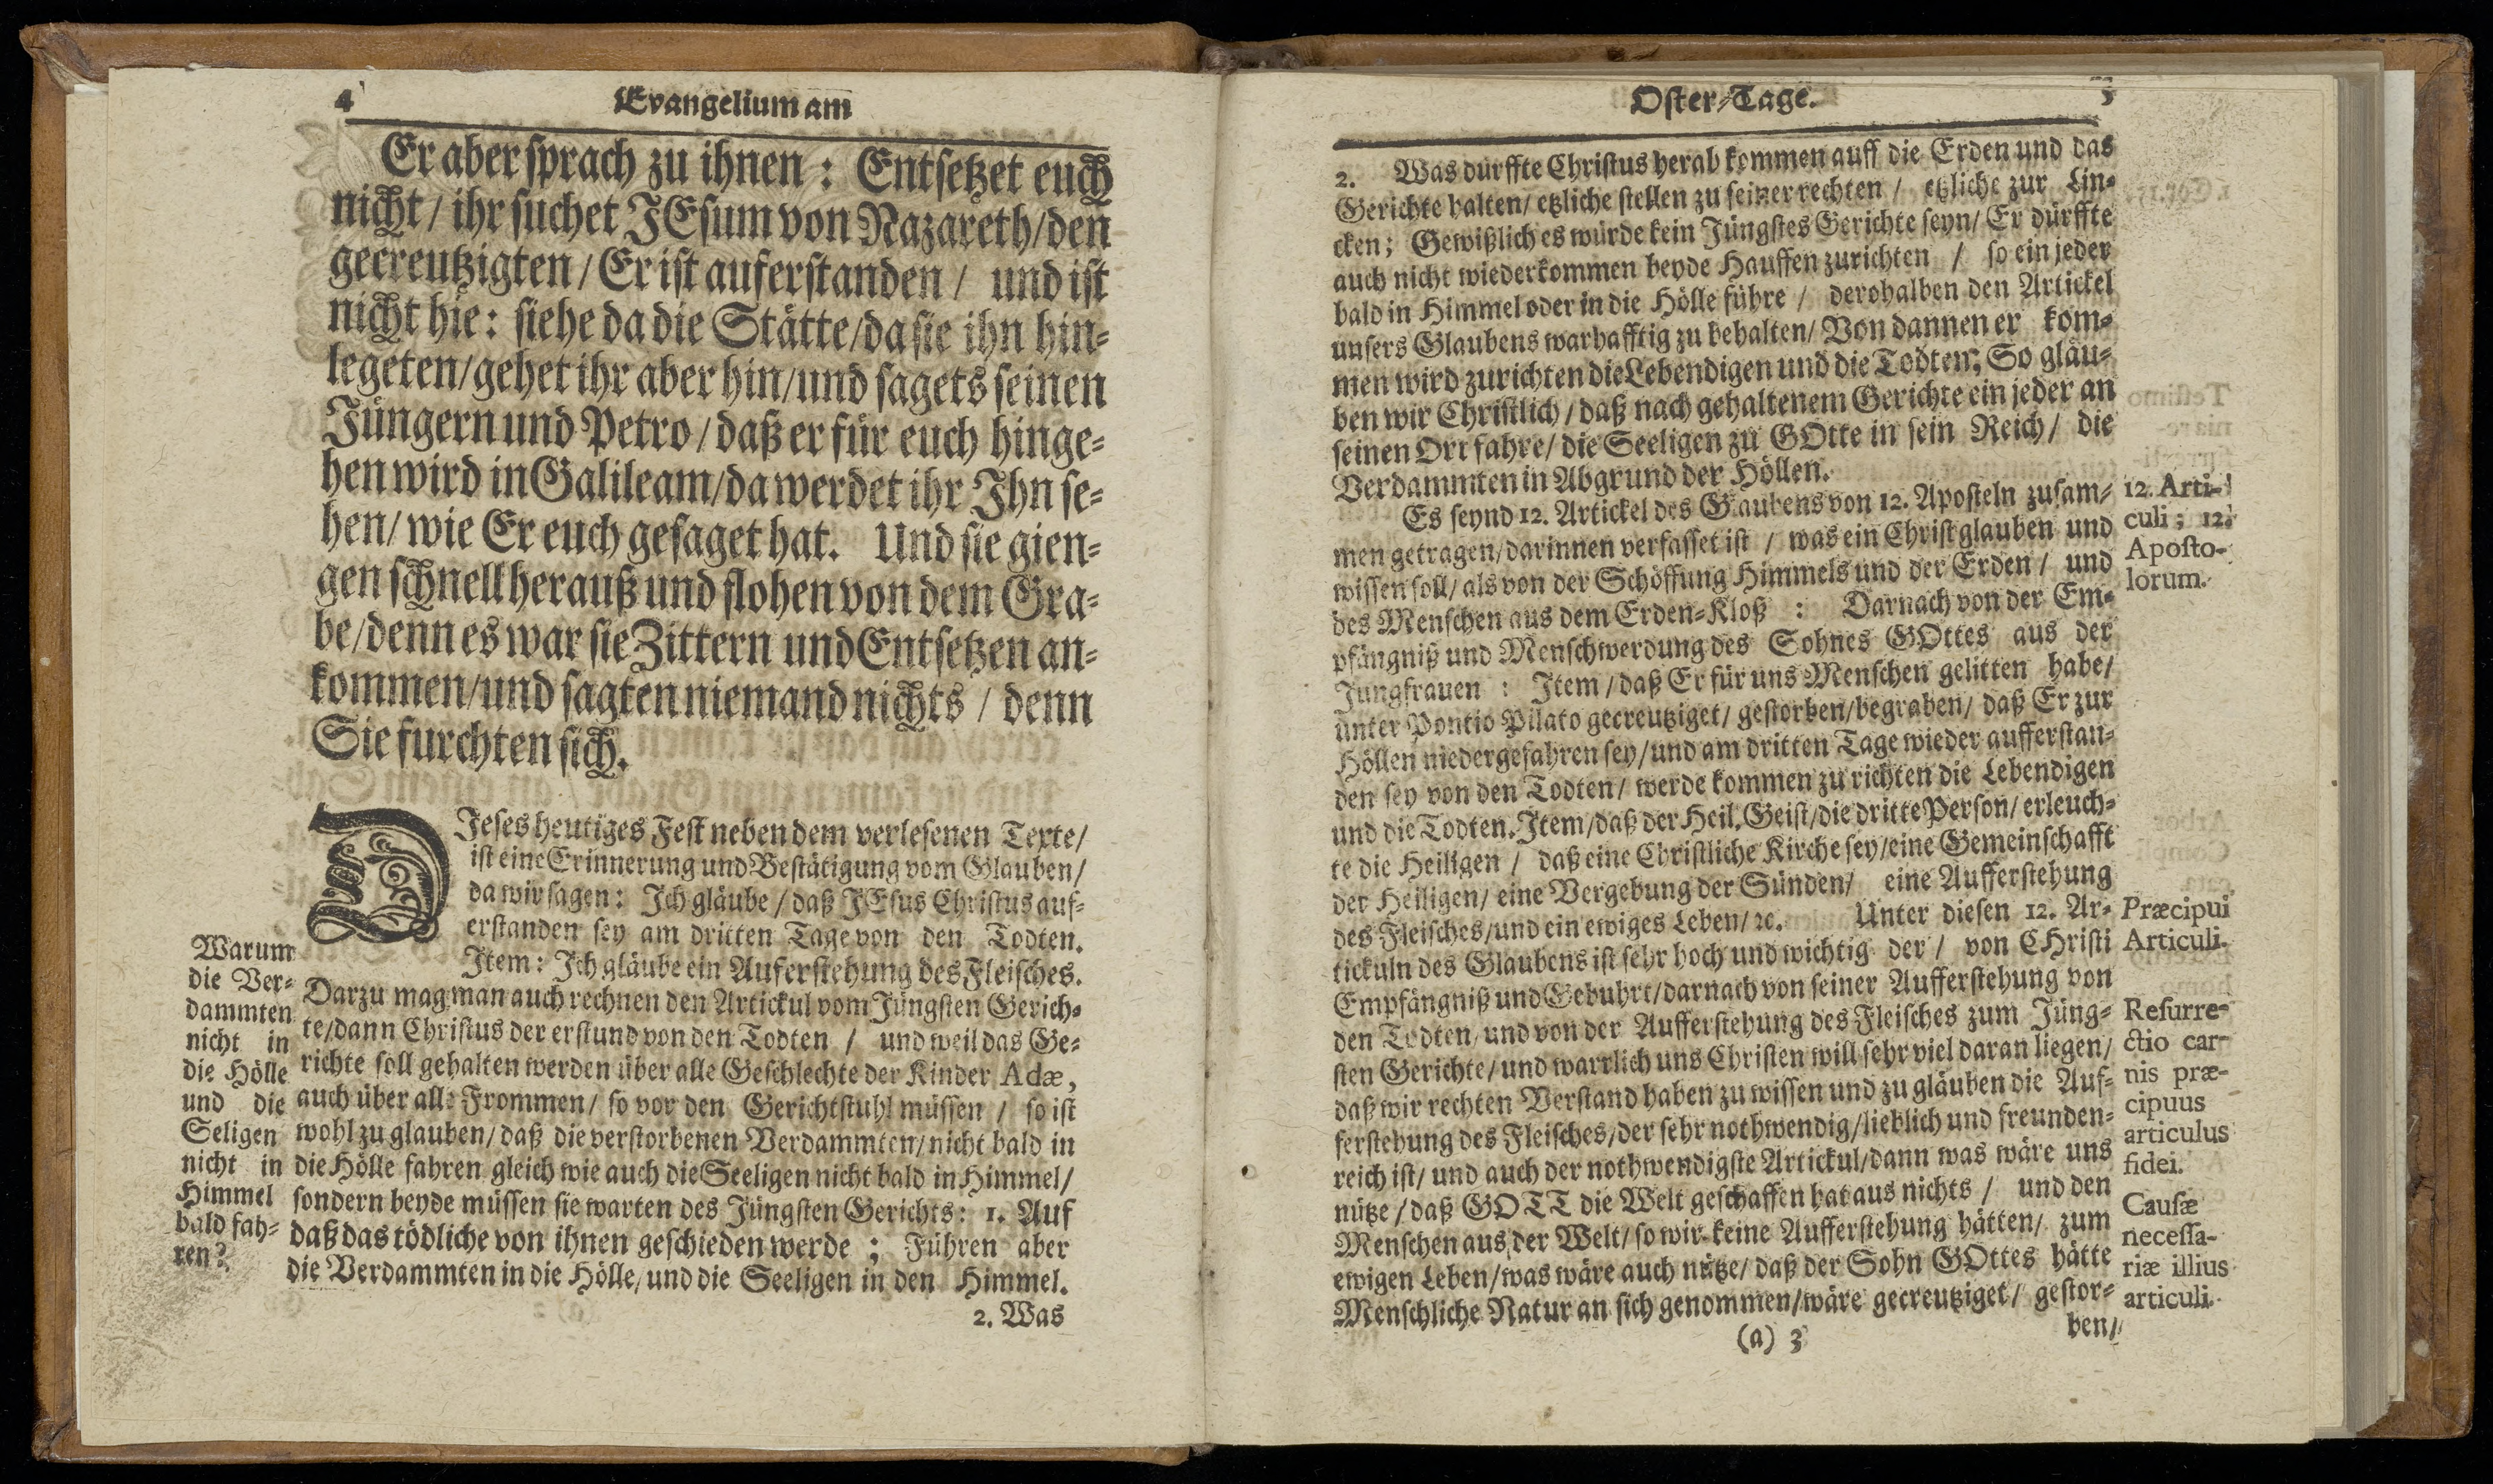 4
Evangelium am
Er aber sprach zu ihnen: Entsetzet euch
nicht / ihr suchet JEsum von Nazareth/den
gecreutzigten / Er ist auferstanden / und ist
nicht hie: siehe da die Stätte/da sie ihn hin-
legeten/gehet ihr aber hin/und sagets seinen
Jüngern und Petro / daß er für euch hinge-
hen wird in Galileam/da werdet ihr Ihn se-
hen/ wie Er euch gesaget hat. Und sie gien-
gen schnell herauß und flohen von dem Gra-
be/denn es war sie Zittern und Entsetzen an-
kommen/und sagten niemand nichts / denn
Sie furchten sich.
DIeses heutiges Fest neben dem verlesenen Texte/
ist eine Erinnerung und Bestätigung vom Glauben/
da wir sagen: Ich gläube / daß JEsus Christus auf-
erstanden sey am dritten Tage von den Todten.
Item: Ich gläube ein Auferstehung des Fleisches.
Darzu mag man auch rechnen den Artickul vom Jüngsten Gerich-
te/dann Christus der erstund von den Todten / und weil das Ge-
richte soll gehalten werden über alle Geschlechte der Kinder Adæ,
auch über alle Frommen/ so vor den Gerichtstuhl müssen / so ist
wohl zu glauben/ daß die verstorbenen Verdammten/nicht bald in
die Hölle fahren gleich wie auch die Seeligen nicht bald in Himmel/
sondern beyde müssen sie warten des Jüngsten Gerichts: 1. Auf
daß das tödliche von ihnen geschieden werde ; Führen aber
die Verdammten in die Hölle/ und die Seeligen in den Himmel.
2. Was
Warum
die Ver-
dammten
nicht in
die Hölle
und die
Seligen
nicht in
Himmel
bald fah-
ren?
Oster-Tage.
2. Was dürffte Christus herab kommen auff die Erden und das
Gerichte halten/ etzliche stellen zu seiner rechten / etzliche zur Lin-
cken; Gewißlich es würde kein Jüngstes Gerichte seyn/ Er dürffte
auch nicht wiederkommen beyde Hauffen zurichten / so ein jeder
bald in Himmel oder in die Hölle führe / derohalben den Artickel
unsers Glaubens warhafftig zu behalten/ Von dannen er kom-
men wird zurichten die Lebendigen und die Todten; So gläu-
ben wir Christlich / daß nach gehaltenem Gerichte ein jeder an
seinen Ort fahre/ die Seeligen zu GOtte in sein Reich/ die
Verdammten in Abgrund der Höllen.
Es seynd 12. Artickel des Glaubens von 12. Aposteln zusam-
men getragen/darinnen verfasset ist / was ein Christ glauben und
wissen soll/ als von der Schöffung Himmels und der Erden / und
des Menschen aus dem Erden-Kloß : Darnach von der Em-
pfängniß und Menschwerdung des Sohnes GOttes aus der
Jungfrauen : Item / daß Er für uns Menschen gelitten habe/
unter Pontio Pilato gecreutziget/ gestorben/begraben/ daß Er zur
Höllen niedergefahren sey/und am dritten Tage wieder aufferstan-
den sey von den Todten/ werde kommen zu richten die Lebendigen
und die Todten. Item/daß der Heil. Geist/die dritte Person/ erleuch-
te die Heiligen / daß eine Christliche Kirche sey/eine Gemeinschafft
der Heiligen/ eine Vergebung der Sünden/ eine Aufferstehung
des Fleisches/und ein ewiges Leben/ ꝛc. Unter diesen 12. Ar-
tickuln des Glaubens ist sehr hoch und wichtig der / von CHristi
Empfängniß und Gebuhrt/darnach von seiner Aufferstehung von
den Todten/ und von der Aufferstehung des Fleisches zum Jüng-
sten Gerichte/ und warrlich uns Christen will sehr viel daran liegen/
daß wir rechten Verstand haben zu wissen und zu gläuben die Auf-
ferstehung des Fleisches/der sehr nothwendig/lieblich und freunden-
reich ist/ und auch der nothwendigste Artickul/dann was wäre uns
nütze / daß GOTT die Welt geschaffen hat aus nichts / und den
Menschen aus der Welt/ so wir keine Aufferstehung hätten/ zum
ewigen Leben/was wäre auch nütze/ daß der Sohn GOttes hätte
Menschliche Natur an sich genommen/wäre gecreutziget/ gestor-
(a) 3
ben/
12. Arti-
culi; 12.
Aposto-
lorum.
Præcipui
Articuli.
Resurre-
ctio car-
nis præ-
cipuus
articulus
fidei.
Causæ
necessa-
riæ illius
articuli.